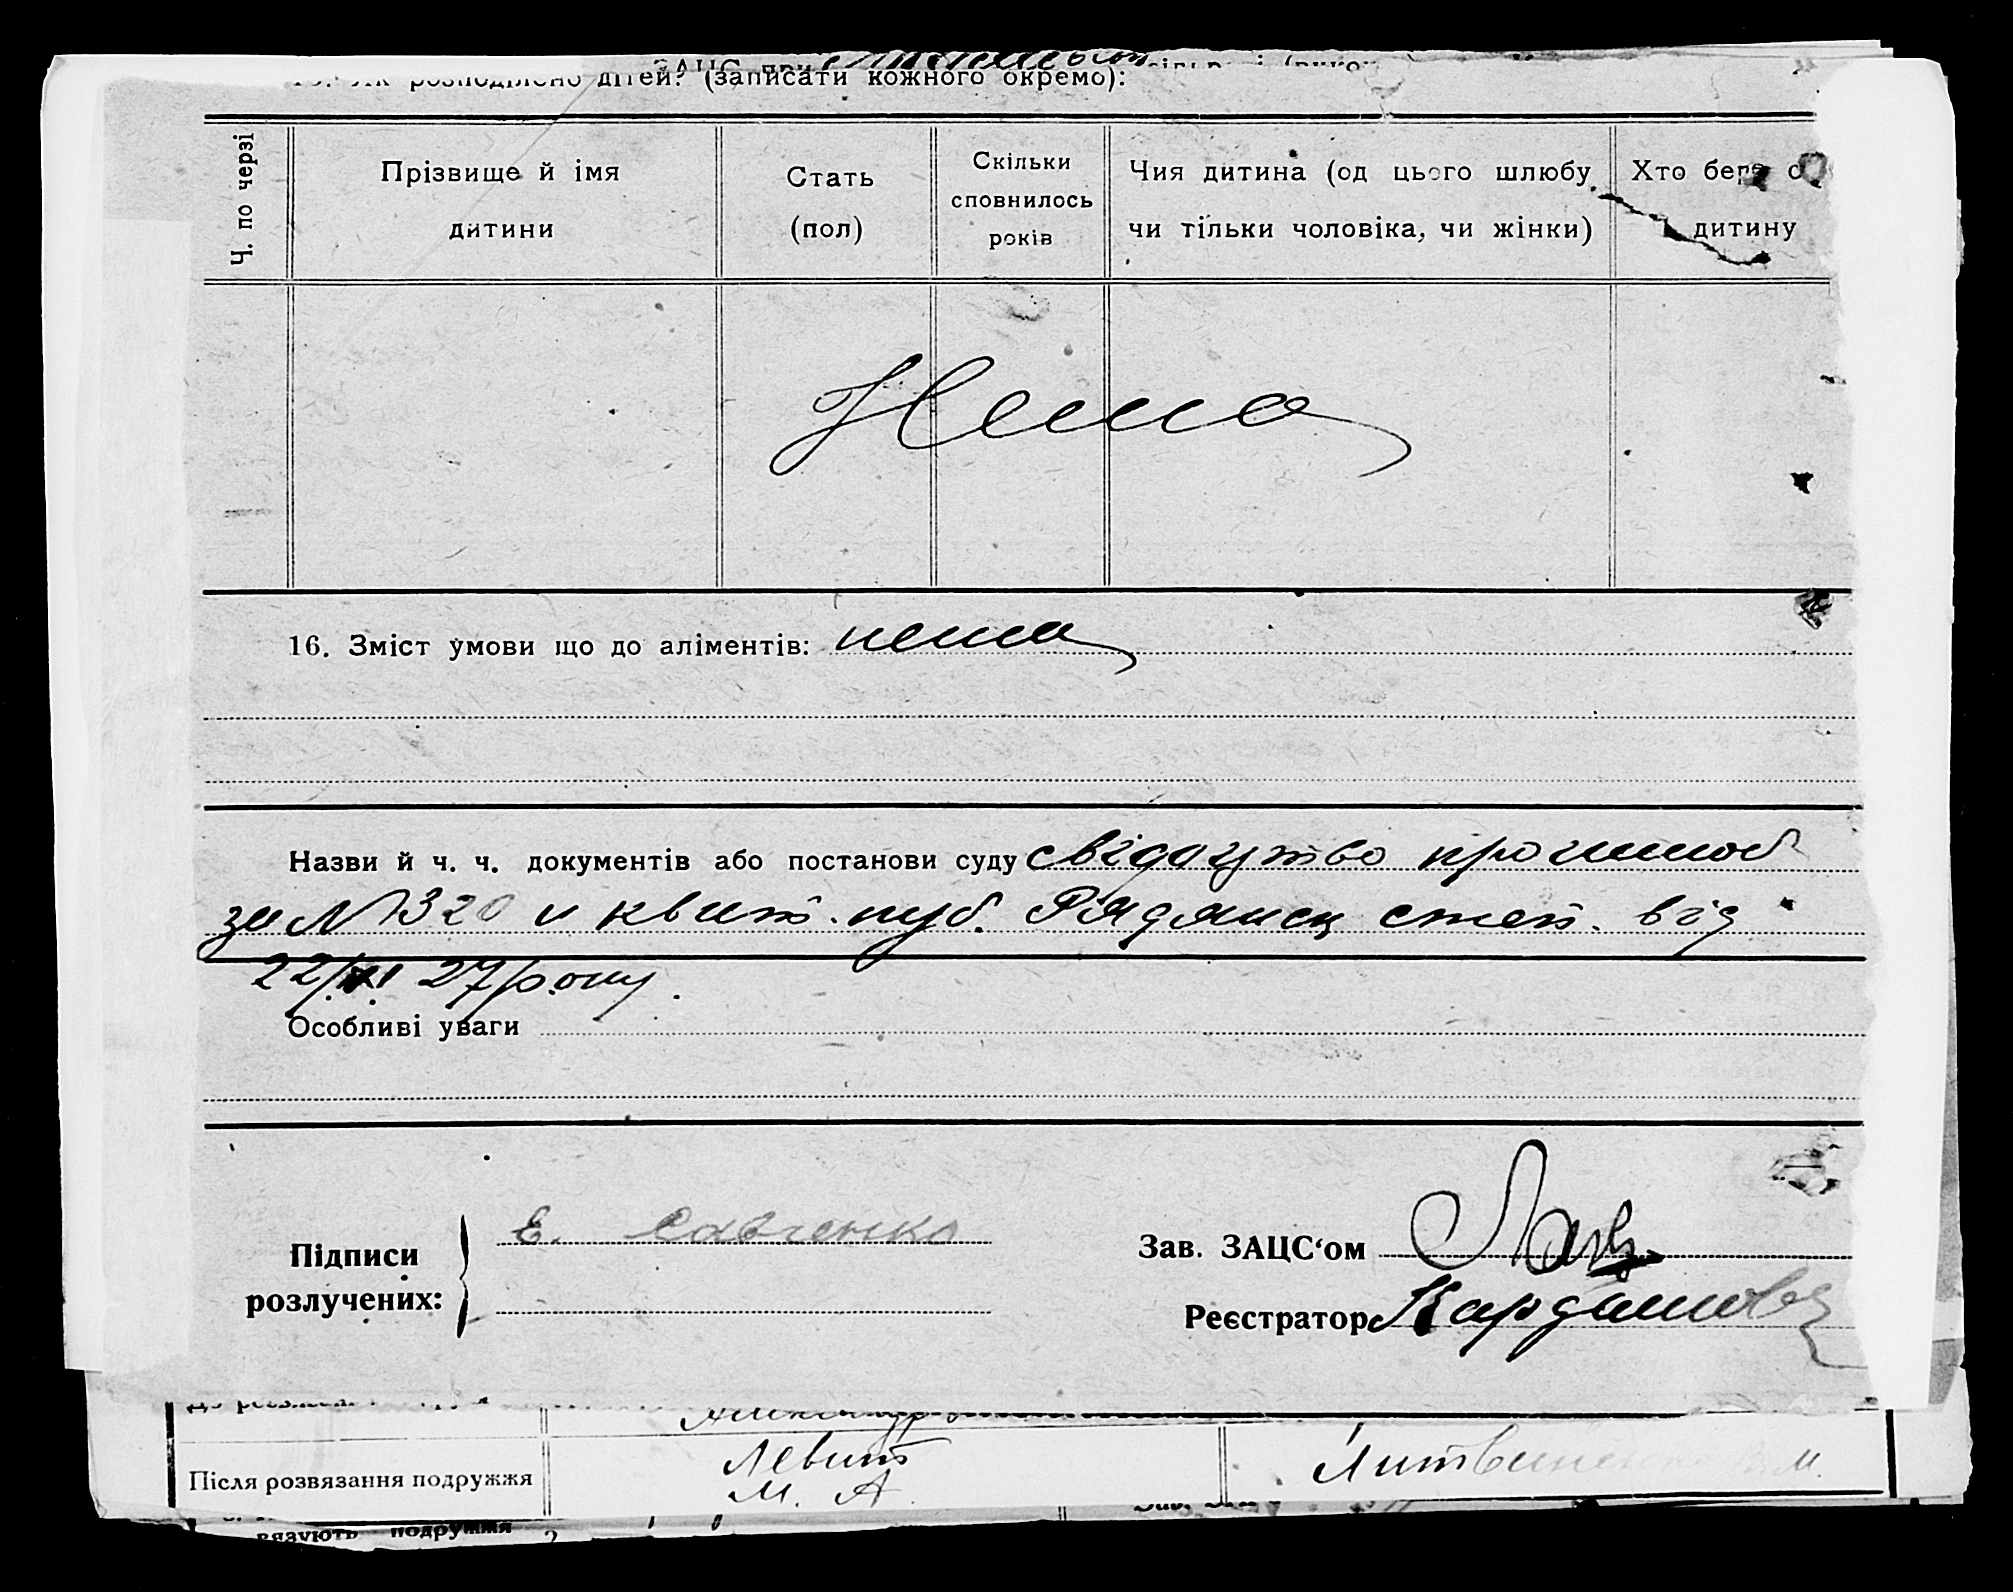 ЗАЦС при
розподілено дітей? (записати кожного окремо):
Ч. по черзі
Прізвище й імя
дитини
Стать
(пол)
Скільки
сповнилось
років
Чия дитина (од цього шлюбу
чи тільки чоловіка, чи жінки)
Хто бере
дитину
Нема
16. Зміст умови що до аліментів: нема
Назви й ч. ч. документів або постанови суду свідоцтво про шлюб
за № 320 и квит. пуб. Радянськ степ. від
22/VI 27 року.
Особливі уваги
Підписи
розлучених:
Е. Савченко
Зав. ЗАЦС'ом
Реєстратор
Після розвязання подружжя
Левит
М. А.
Литвиненко М.
вязують подружжя
2